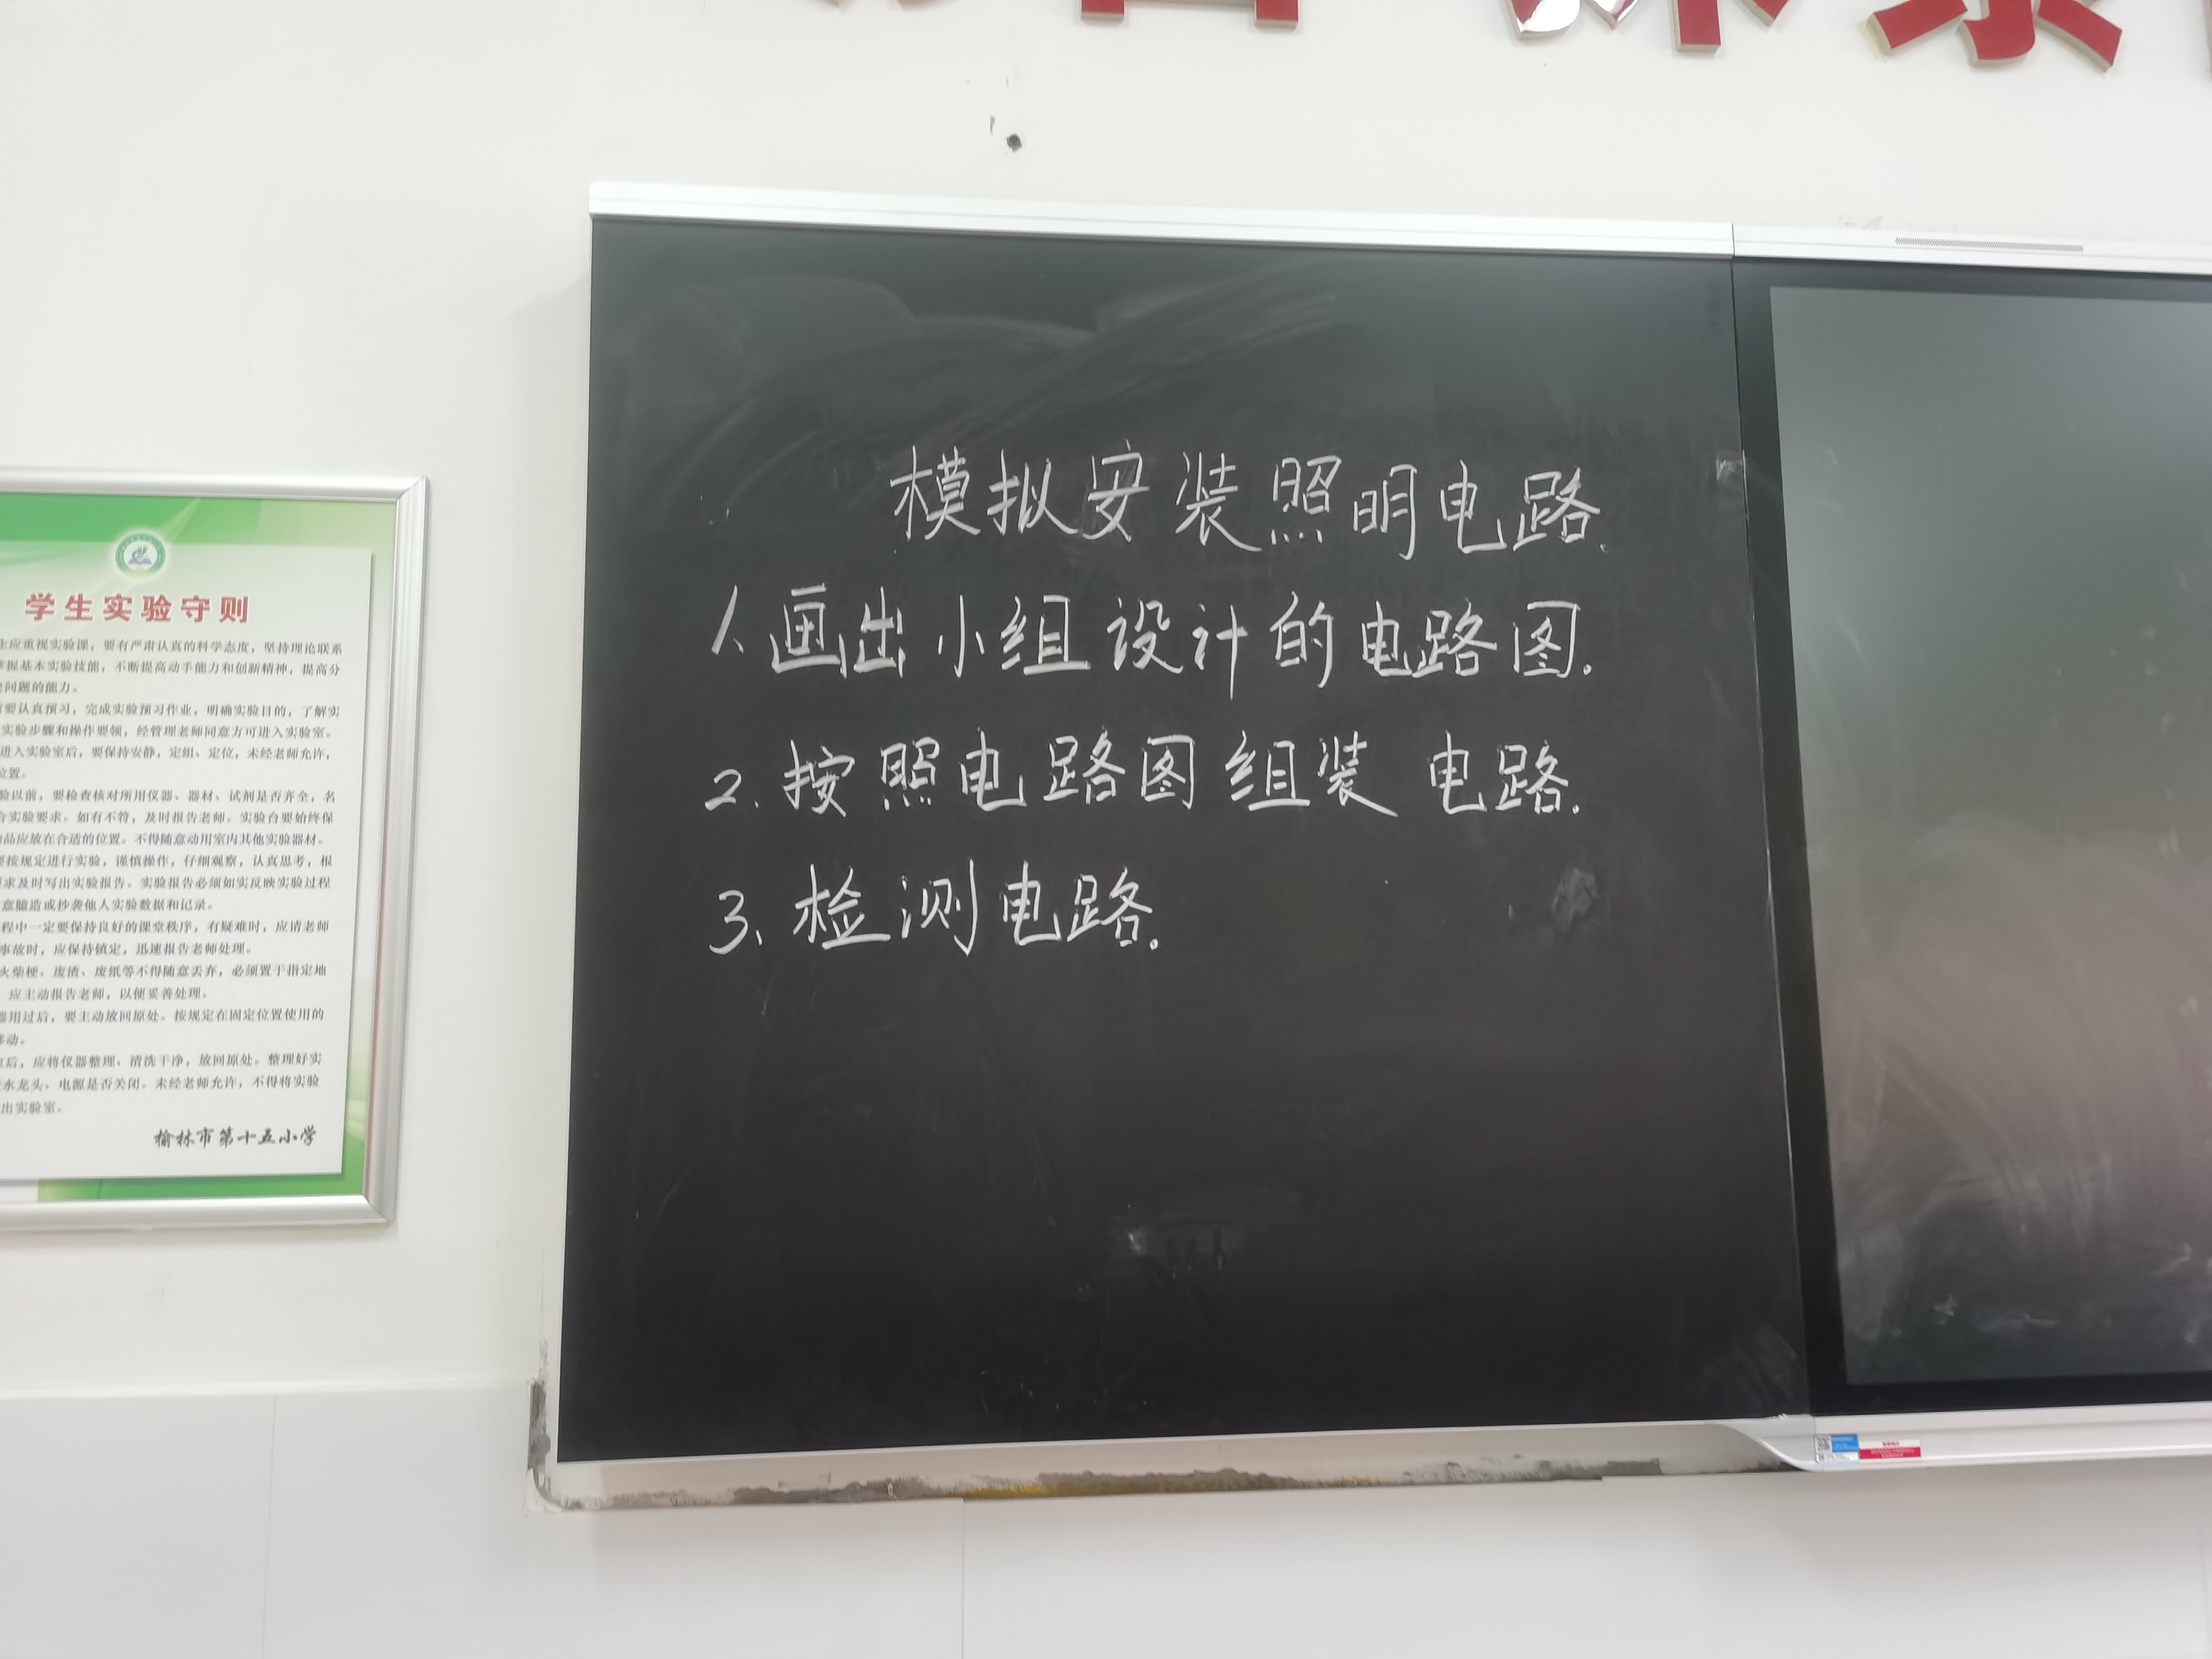 学生实验守则
生应重视实验课，要有严肃认真的科学态度，坚持理论联系
掌握基本实验技能，不断提高动手能力和创新精神，提高分
问题的能力。
要认真预习，完成实验预习作业，明确实验目的，了解实
实验步骤和操作要领，经管理老师同意方可进入实验室。
进入实验室后，要保持安静，定组、定位，未经老师允许，
位置。
验以前，要检查核对所用仪器、器材、试剂是否齐全，名
合实验要求。如有不符，及时报告老师。实验台要始终保
品应放在合适的位置。不得随意动用室内其他实验器材。
要按规定进行实验，谨慎操作，仔细观察，认真思考，根
求及时写出实验报告。实验报告必须如实反映实验过程
意臆造或抄袭他人实验数据和记录。
程中一定要保持良好的课堂秩序，有疑难时，应请老师
事故时，应保持镇定，迅速报告老师处理。
火柴梗、废渣、废纸等不得随意丢弃，必须置于指定地
应主动报告老师，以便妥善处理。
器用过后，要主动放回原处。按规定在固定位置使用的
移动。
后，应将仪器整理、清洗干净，放回原处。整理好实
水龙头、电源是否关闭。未经老师允许，不得将实验
出实验室。
榆林市第十五小学
模拟安装照明电路.
1、画出小组设计的电路图.
2.按照电路图组装电路.
3、检测电路.